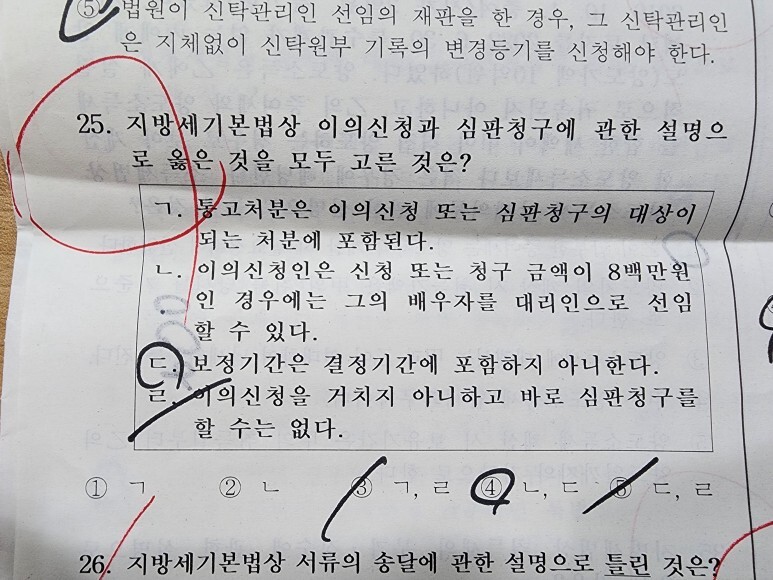 ⑤ 법원이 신탁관리인 선임의 재판을 한 경우, 그 신탁관리인
은 지체없이 신탁원부 기록의 변경등기를 신청해야 한다.
25. 지방세기본법상 이의신청과 심판청구에 관한 설명으
로 옳은 것을 모두 고른 것은?
ㄱ. 통고처분은 이의신청 또는 심판청구의 대상이
되는 처분에 포함된다.
ㄴ. 이의신청인은 신청 또는 청구 금액이 8백만원
인 경우에는 그의 배우자를 대리인으로 선임
할 수 있다.
ㄷ. 보정기간은 결정기간에 포함하지 아니한다.
ㄹ. 이의신청을 거치지 아니하고 바로 심판청구를
할 수는 없다.
① ㄱ ② ㄴ ③ ㄱ, ㄹ ④ ㄴ, ㄷ ⑤ ㄷ, ㄹ
26. 지방세기본법상 서류의 송달에 관한 설명으로 틀린 것은?